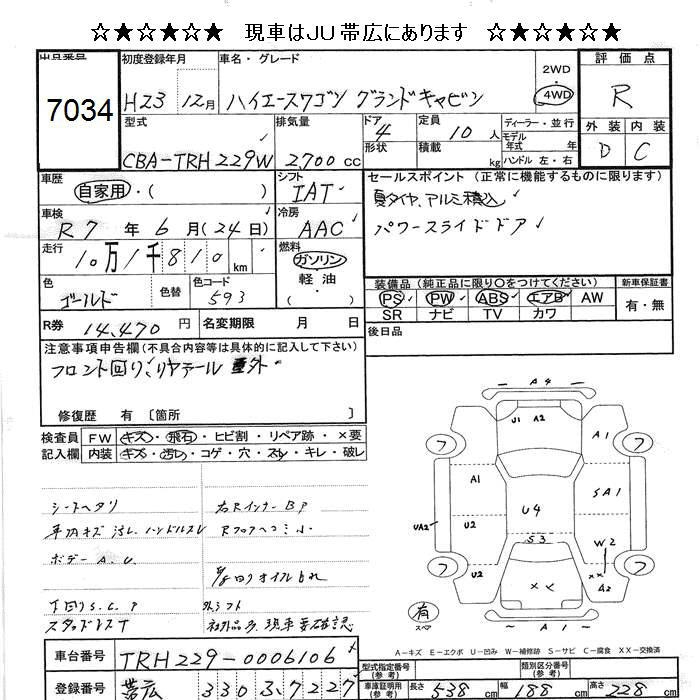 ☆★☆★☆ 現車はJU帯広にあります ☆★☆★☆
出品番号
7034
初度登録年月
H23 12月
車名・グレード
ハイエースワゴン グランドキャビン
2WD
4WD
評価点
R
外装 内装
D C
型式
CBA-TRH229W
排気量
2,700 cc
ドア
4
形状
定員
10人
積載
kg
ディーラー・並行
モデル年式 年
ハンドル 左・右
車歴
自家用・( )
シフト
IAT
セールスポイント(正常に機能するものに限ります)
夏タイヤ、アルミ積込
パワースライドドア
車検
R7年 6月(24日)
冷房
AAC
走行
10万1千810km
燃料
ガソリン
軽油
( )
色
ゴールド
色替
色コード
593
装備品(純正品に限り○をつけてください)
PS PW ABS エアB AW
SR ナビ TV カワ
新車保証書
有・無
R券 14,470円
名変期限 月 日
後日品
注意事項申告欄(不具合内容等は具体的に記入して下さい)
フロント回り、リヤテール 社外
修復歴 有〔箇所 〕
検査員記入欄
FW キズ・飛石・ヒビ割・リペア跡・×要
内装 キズ・汚れ・コゲ・穴・スレ・キレ・破レ
シートヘタリ
右Rインナー BP
車内キズ 汚レ ハンドルスレ
Rフロアヘコミ 小
ボデー A.U.
下回りS.C.P
スタッドレスT
社外品多 現車要確認
A4
U1 A2
A1
フ フ
A1
SA1
UA2
U2
U4
S3
W2
××
U2
××
A2
フ フ
有
スペア
A1
A-キズ E-エクボ U-凹み W-補修跡 S-サビ C-腐食 XX-交換済
車台番号 TRH229-0006106
型式指定番号(参考)
類別区分番号(参考)
登録番号 帯広 330 ふ 7227
車庫証明用(参考) 長さ 538cm 幅 188cm 高さ 228cm